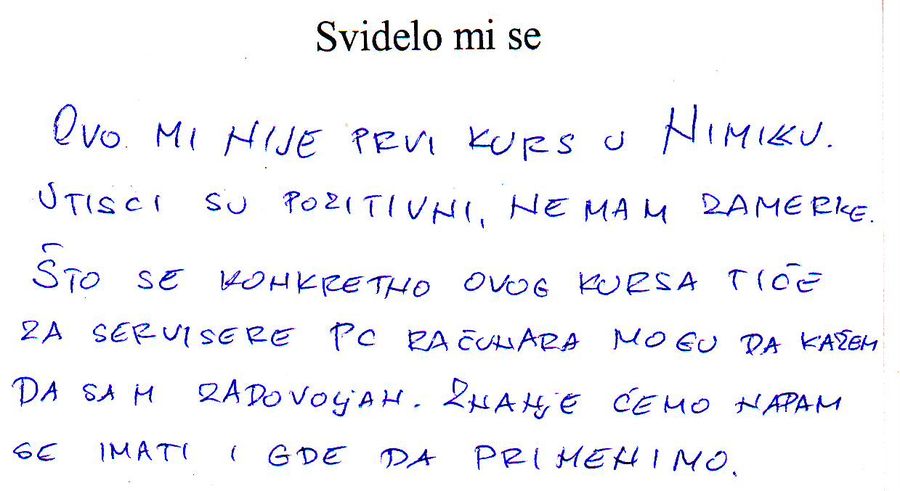 Svidelo mi se
Ovo mi nije prvi kurs u Nimiku.
Utisci su pozitivni, nemam zamerke.
Što se konkretno ovog kursa tiče
za servisere PC računara mogu da kažem
da sam zadovoljan. Znanje ćemo nadam
se imati i gde da primenimo.